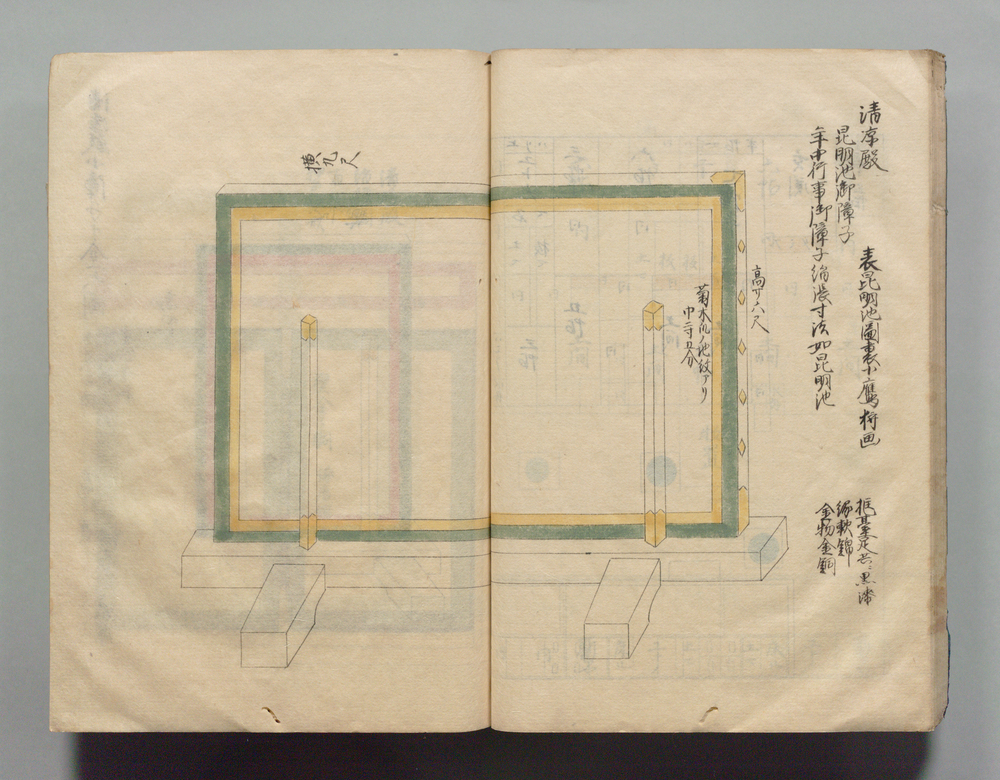 清凉殿
昆明池御障子
年中行事御障子絹張寸法如昆明池
表昆明池圖裏小鷹狩画
框基足共ニ黒漆
縁軟錦
金物金銅
高サ六尺
菊木瓜ノ地紋アリ
巾二寸五分
横九尺